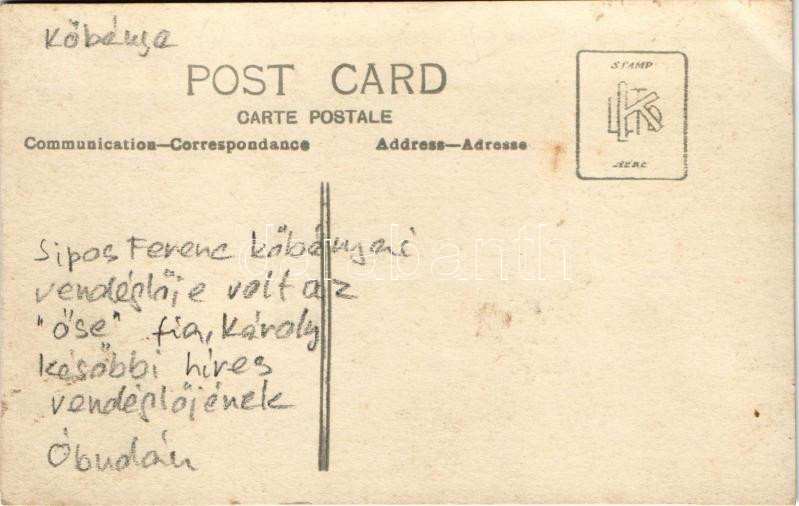 Kőbánya
POST CARD
CARTE POSTALE
Communication—Correspondance
Address—Adresse
STAMP
HERE
Sipos Ferenc kőbányai
vendéglője volt az
"őse" fia, Károly
későbbi híres
vendéglőjének
Óbudán
darabanth